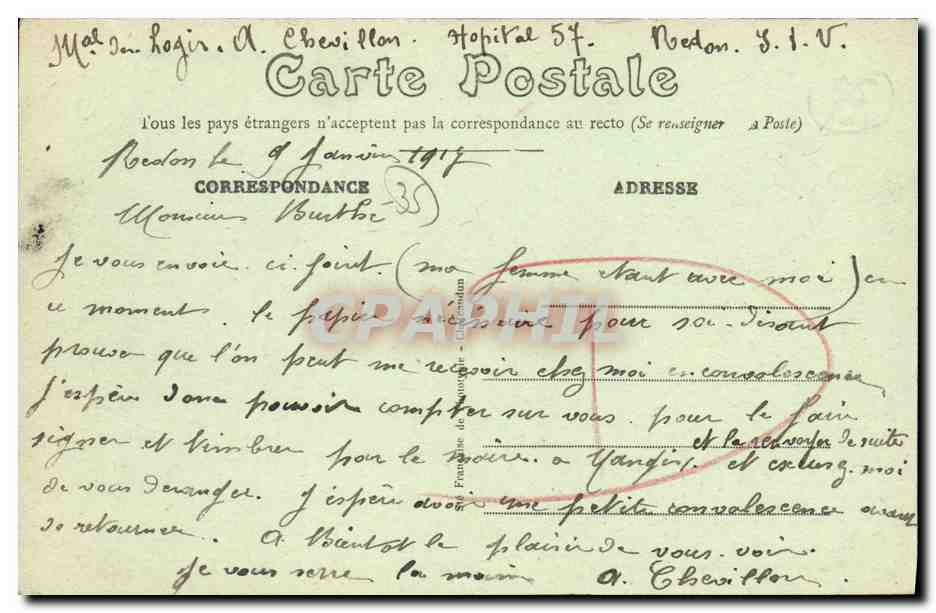 Mal des Logis. A. Chevillon. Hopital 57. Redon. I. I. V.
Carte Postale
Tous les pays étrangers n'acceptent pas la correspondance au recto (Se renseigner à Poste)
Redon le 9 Janvier 1917
CORRESPONDANCE
ADRESSE
35
Monsieur Burthe
Je vous envoie ci joint. (ma femme etant avec moi) en
ce moment. le papier nécéssaire pour soi-disant
prouver que l'on peut me recevoir chez moi en convalescence
J'espère donc pouvoir compter sur vous. pour le faire
et le renvoyer de suite
signer et timbrer par le maire. a et excusez moi
de vous deranger. J'espère avoir une petite convalescence avant
de retourner. A Bientot le plaisir de vous voir.
Je vous serre la main A. Chevillon.
CPAPHIL